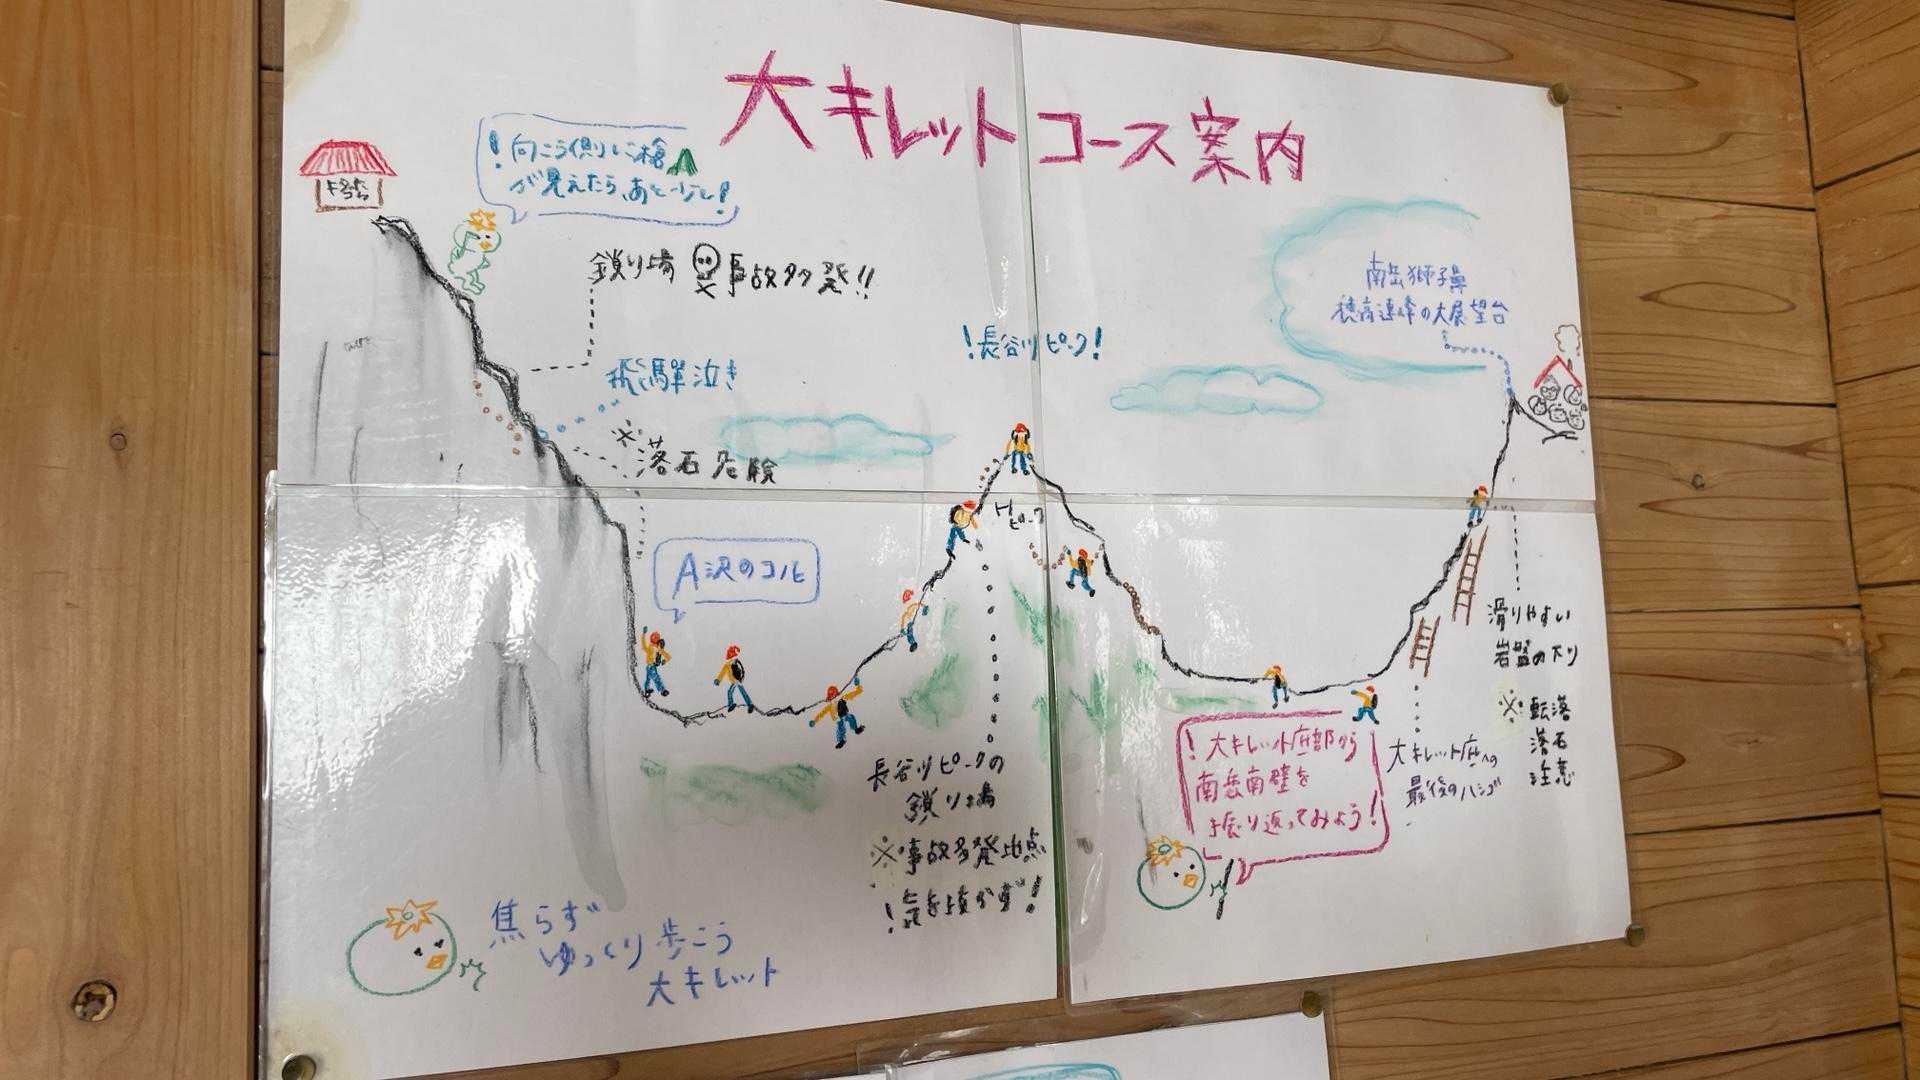 大キレットコース案内
！向こう側に槍
が見えたら、あと一歩と！
鎖り場 事故多発!!
飛騨泣き
※落石危険
！長谷川ピーク！
南岳獅子鼻
穂高連峰の大展望台
Hピーク
A沢のコル
滑りやすい
岩盤の下り
※転落
落石
注意
大キレット底への
最後のハシゴ
！大キレット底部から
南岳南壁を
振り返ってみよう！
長谷川ピークの
鎖り場
※事故多発地点
！気を抜かず！
焦らず
ゆっくり歩こう
大キレット